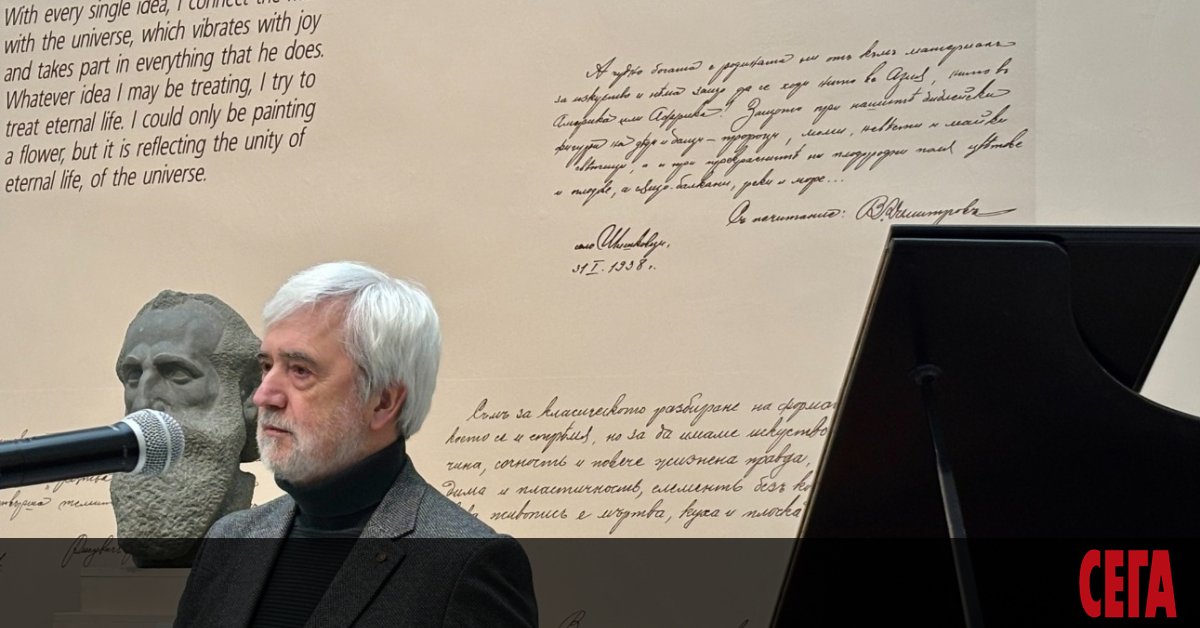 With every single idea, I connect the
with the universe, which vibrates with joy
and takes part in everything that he does.
Whatever idea I may be treating, I try to
treat eternal life. I could only be painting
a flower, but it is reflecting the unity of
eternal life, of the universe.
А чудно богата е родината ни отъ къмъ материалъ
за изкуство и нѣма защо да се ходи нито въ Азия, нито въ
Америка или Африка! Защото при нашитѣ библейски
фигури на дѣди и бащи – пророци, моми, невѣсти и майки
светици, а и при прекрасните ни плодородни поля цвѣтове
и плодове, а също балкани, реки и море...
Съ почитание: В. Димитровъ
село Шишковци,
31 I. 1938 г.
Съмъ за класическото разбиране на форма
което се и стремя, но за да имаме изкуство
чина, сочность и повече жизнена правда,
дима и пластичность, елементъ безъ
живопись е мъртва, куха и плоска
СЕГА